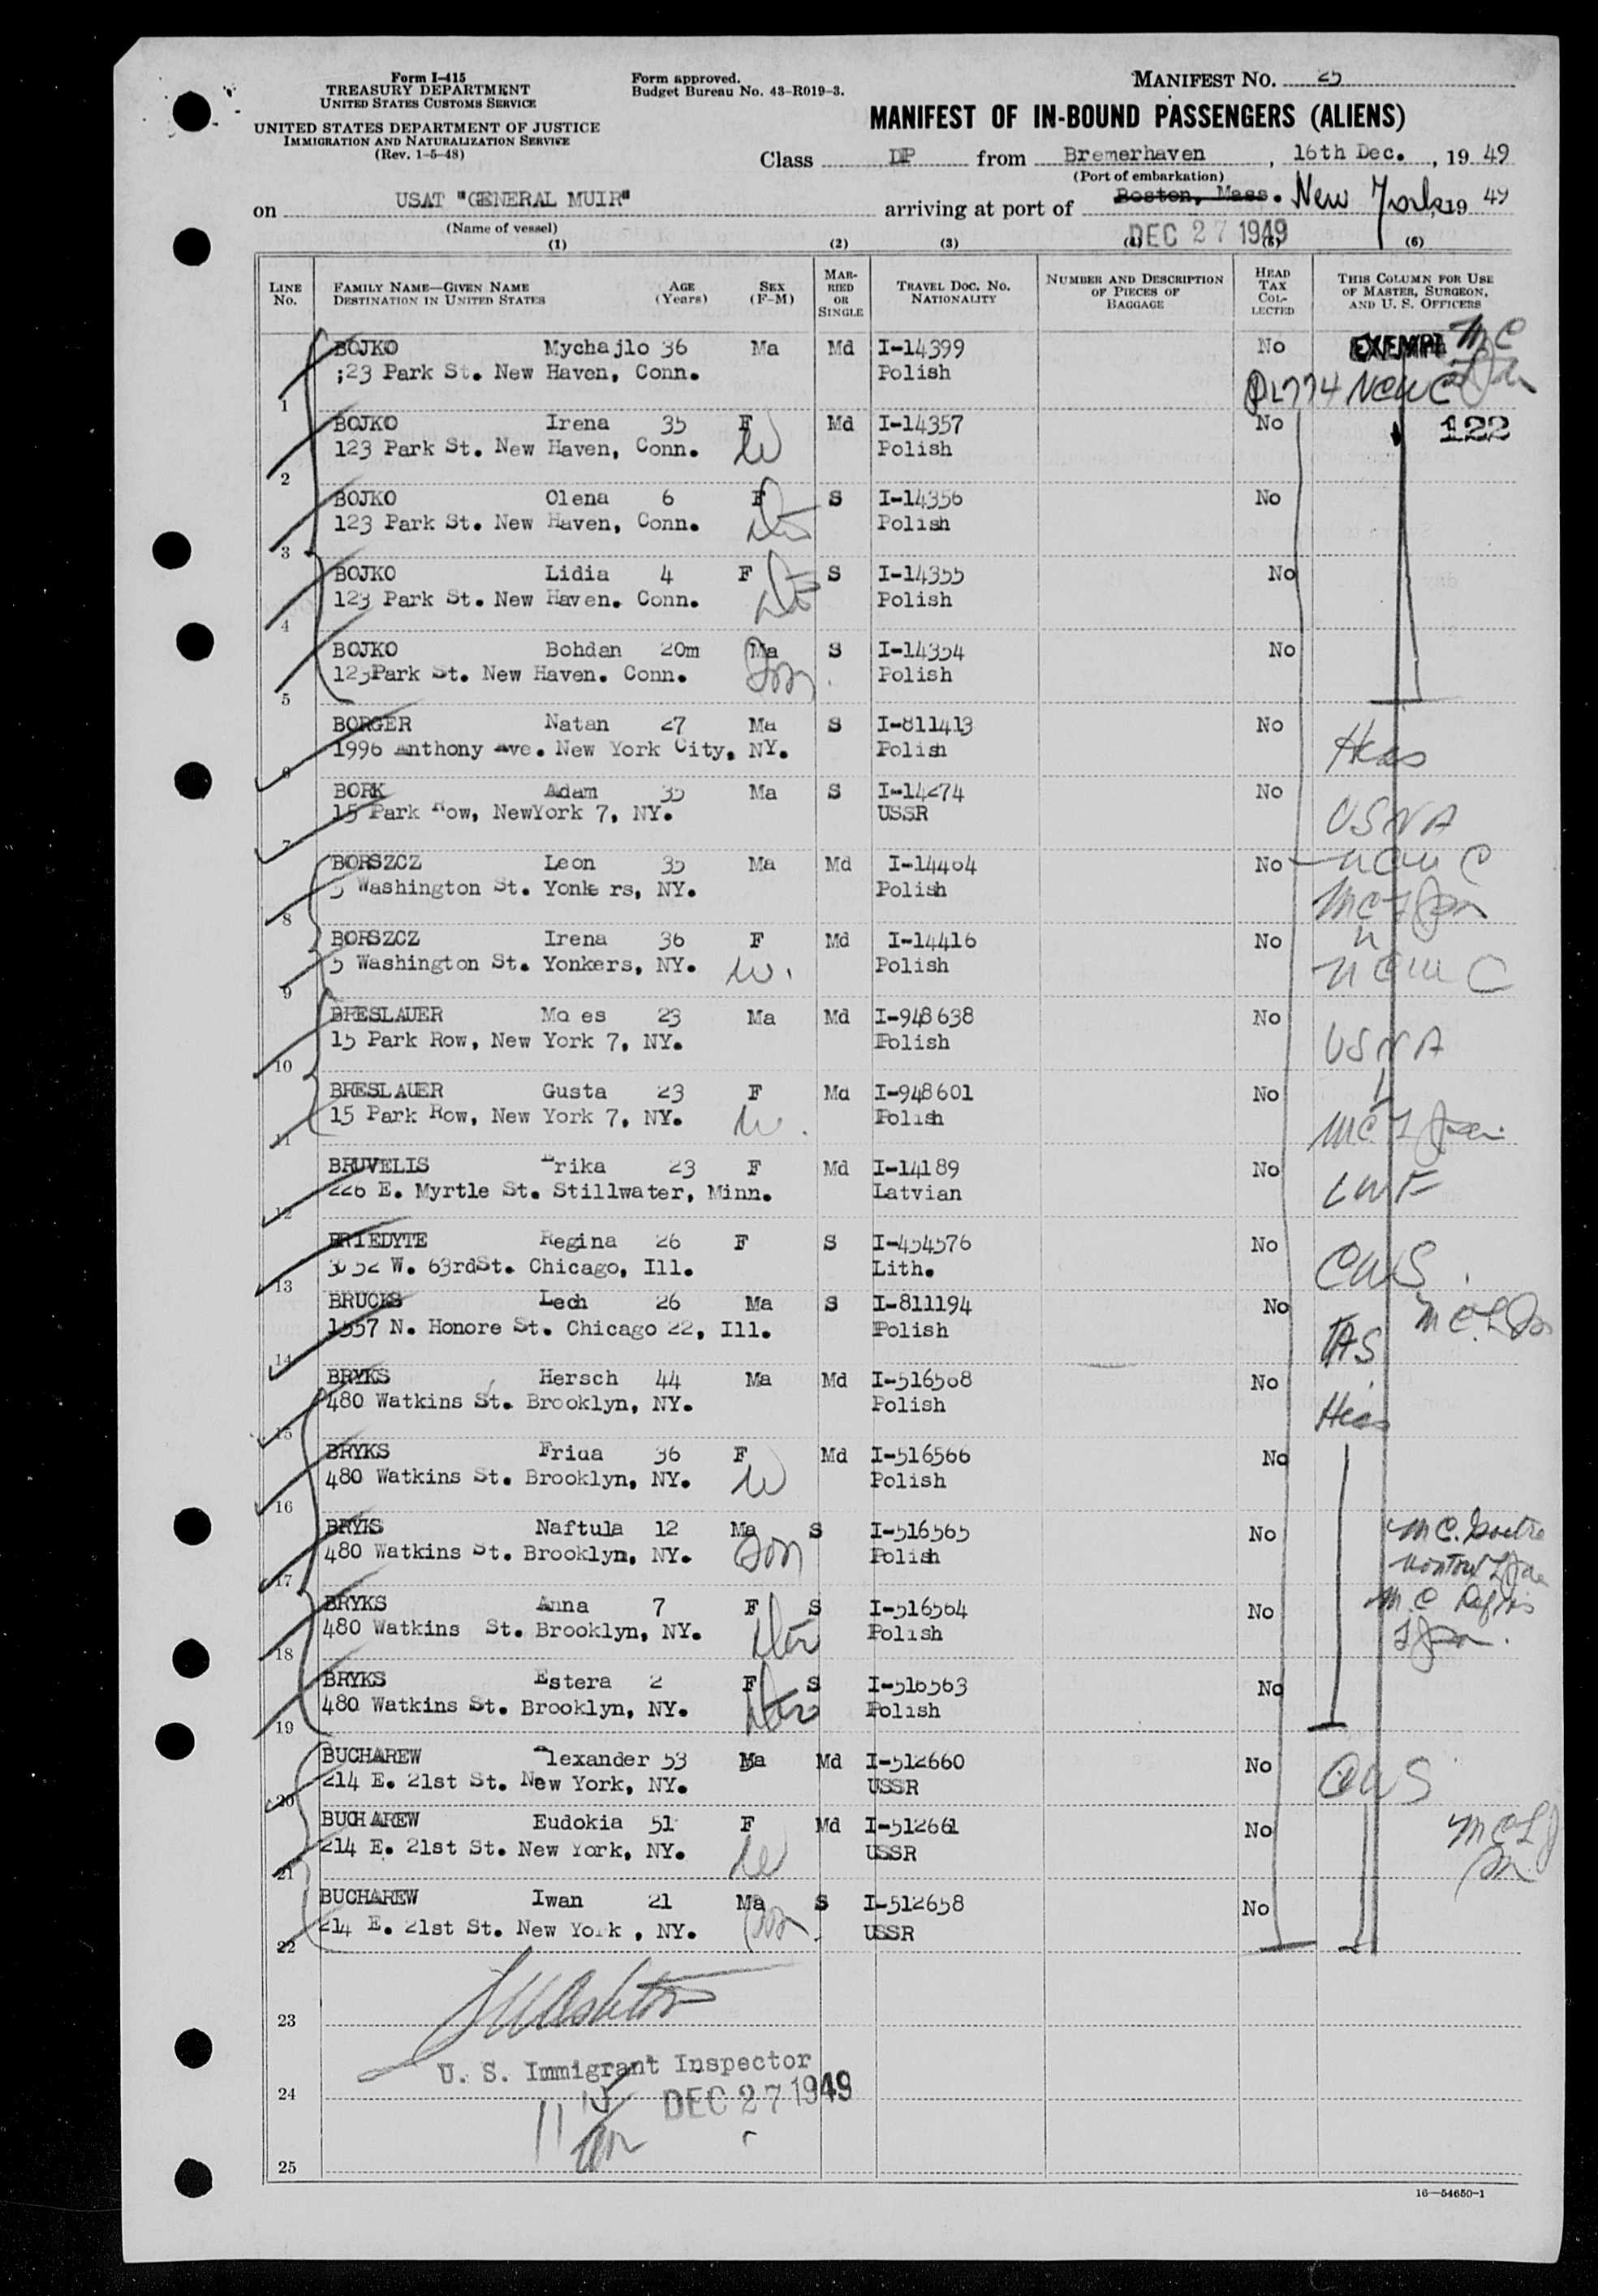 Form I-415
TREASURY DEPARTMENT
UNITED STATES CUSTOMS SERVICE
UNITED STATES DEPARTMENT OF JUSTICE
IMMIGRATION AND NATURALIZATION SERVICE
(Rev. 1-5-48)
Form approved.
Budget Bureau No. 43-R019-3.
MANIFEST NO. 25
MANIFEST OF IN-BOUND PASSENGERS (ALIENS)
Class DP from Bremerhaven, 16th Dec., 1949
(Port of embarkation)
on USAT "GENERAL MUIR" arriving at port of Boston, Mass. New York, 1949
(Name of vessel)
DEC 27 1949
(1) (2) (3) (4) (5) (6)
LINE No. FAMILY NAME—GIVEN NAME DESTINATION IN UNITED STATES AGE (Years) SEX (F-M) MARRIED OR SINGLE TRAVEL DOC. NO. NATIONALITY NUMBER AND DESCRIPTION OF PIECES OF BAGGAGE HEAD TAX COLLECTED THIS COLUMN FOR USE OF MASTER, SURGEON, AND U. S. OFFICERS
BOJKO Mychajlo 36 Ma Md I-14399 No EXEMPT MC
;23 Park St. New Haven, Conn. Polish
1 PL774 NCWC
BOJKO Irena 35 F Md I-14357 No 122
123 Park St. New Haven, Conn. W Polish
2
BOJKO Olena 6 F S I-14356 No
123 Park St. New Haven, Conn. Polish
3
BOJKO Lidia 4 F S I-14355 No
123 Park St. New Haven. Conn. Polish
4
BOJKO Bohdan 20m Ma S I-14354 No
123Park St. New Haven. Conn. Son Polish
5
BORGER Natan 27 Ma S I-811413 No
1996 Anthony Ave. New York City, NY. Polish Hias
6
BORK Adam 35 Ma S I-14274 No
15 Park Row, NewYork 7, NY. USSR USNA
7
BORSZCZ Leon 35 Ma Md I-14464 No NCWC
5 Washington St. Yonke rs, NY. Polish
8
BORSZCZ Irena 36 F Md I-14416 No
5 Washington St. Yonkers, NY. W. Polish NCWC
9
BRESLAUER Mo es 23 Ma Md I-948638 No
15 Park Row, New York 7, NY. Polish USNA
10
BRESLAUER Gusta 23 F Md I-948601 No
15 Park Row, New York 7, NY. W. Polish
11
BRUVELIS Erika 23 F Md I-14189 No
226 E. Myrtle St. Stillwater, Minn. Latvian LWF
12
BRIEDYTE Regina 26 F S I-454576 No
W. 63rdSt. Chicago, Ill. Lith. CWS
13
BRUCKS Lech 26 Ma S I-811194 No
1557 N. Honore St. Chicago 22, Ill. Polish
14
BRYKS Hersch 44 Ma Md I-516568 No
480 Watkins St. Brooklyn, NY. Polish Hias
15
BRYKS Frida 36 F Md I-516566 No
480 Watkins St. Brooklyn, NY. W Polish
16
BRYKS Naftula 12 Ma S I-516565 No
480 Watkins St. Brooklyn, NY. Son Polish
17
BRYKS Anna 7 F S I-516564 No
480 Watkins St. Brooklyn, NY. Polish
18
BRYKS Estera 2 F S I-516563 No
480 Watkins St. Brooklyn, NY. Polish
19
BUCHAREW Alexander 53 Ma Md I-512660 No
214 E. 21st St. New York, NY. USSR CWS
20
BUCHAREW Eudokia 51 F Md I-512661 No
214 E. 21st St. New York, NY. W USSR
21
BUCHAREW Iwan 21 Ma S I-512658 No
214 E. 21st St. New York , NY. Son USSR
22
23
U. S. Immigrant Inspector
24 DEC 27 1949
25
16—54650-1